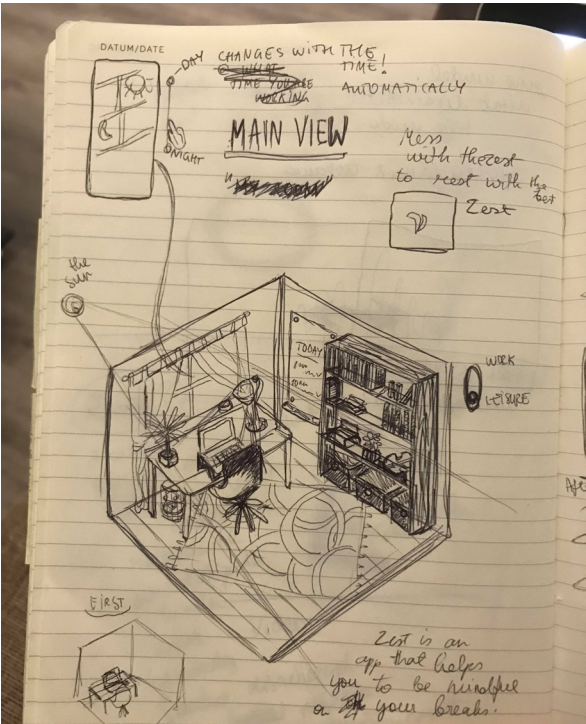 DATUM/DATE
DAY
NIGHT
CHANGES WITH THE
TIME!
TIME YOU'RE
WORKING
AUTOMATICALLY
MAIN VIEW
Mess
with the rest
to rest with the
best
Zest
the
sun
TODAY
WORK
LEISURE
FIRST
Zest is an
app that helps
you to be mindful
your breaks.